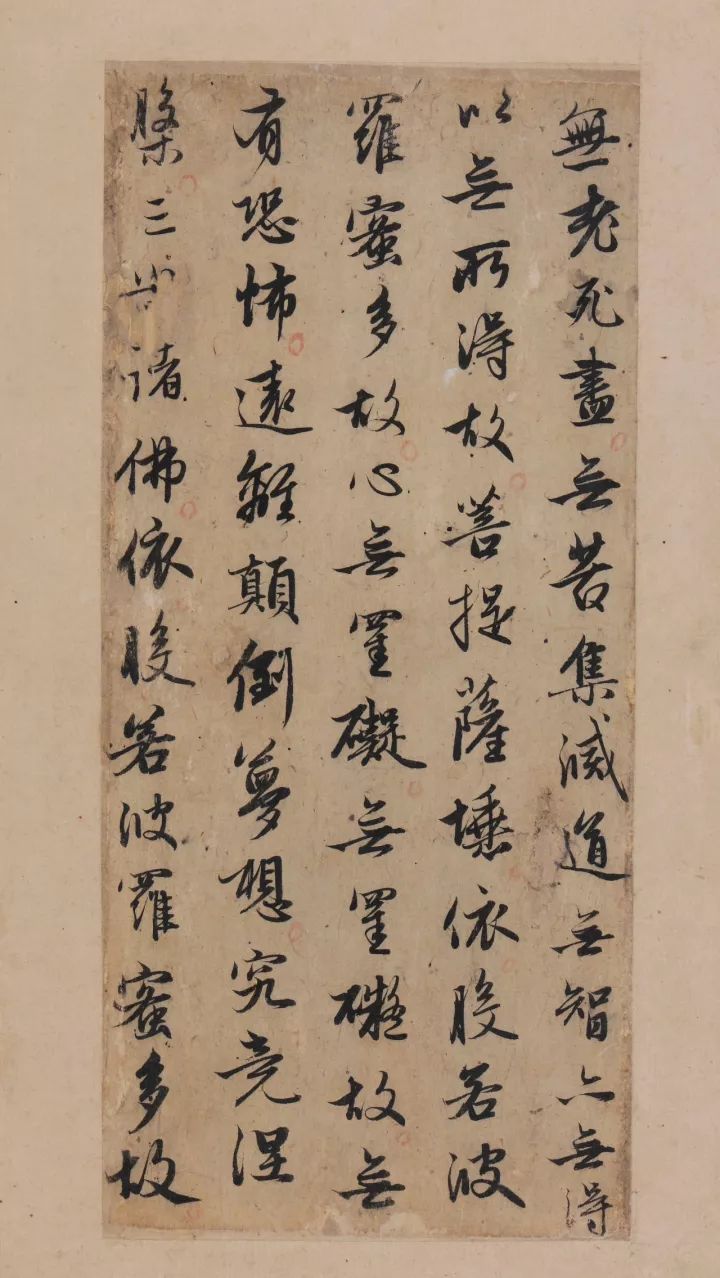 無老死盡無苦集滅道無智亦無得
以無所得故菩提薩埵依般若波
羅蜜多故心無罣礙無罣礙故無
有恐怖遠離顛倒夢想究竟涅
槃三世諸佛依般若波羅蜜多故